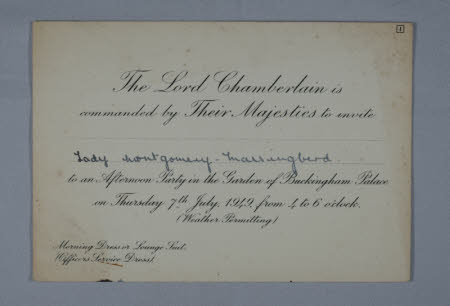 1
The Lord Chamberlain is
commanded by Their Majesties to invite
Lady Montgomery-Massingberd
to an Afternoon Party in the Garden of Buckingham Palace
on Thursday 7th July, 1949, from 4 to 6 o'clock.
(Weather Permitting)
Morning Dress or Lounge Suit.
(Officers Service Dress)